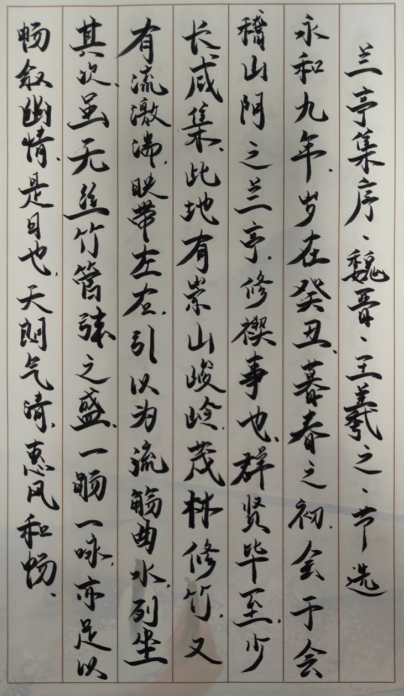 兰亭集序、魏晋、王羲之、节选
永和九年、岁在癸丑、暮春之初、会于会
稽山阴之兰亭、修禊事也、群贤毕至、少
长咸集、此地有崇山峻岭、茂林修竹、又
有流激湍、映带左右、引以为流觞曲水、列坐
其次、虽无丝竹管弦之盛、一觞一咏、亦足以
畅叙幽情、是日也、天朗气晴、惠风和畅、